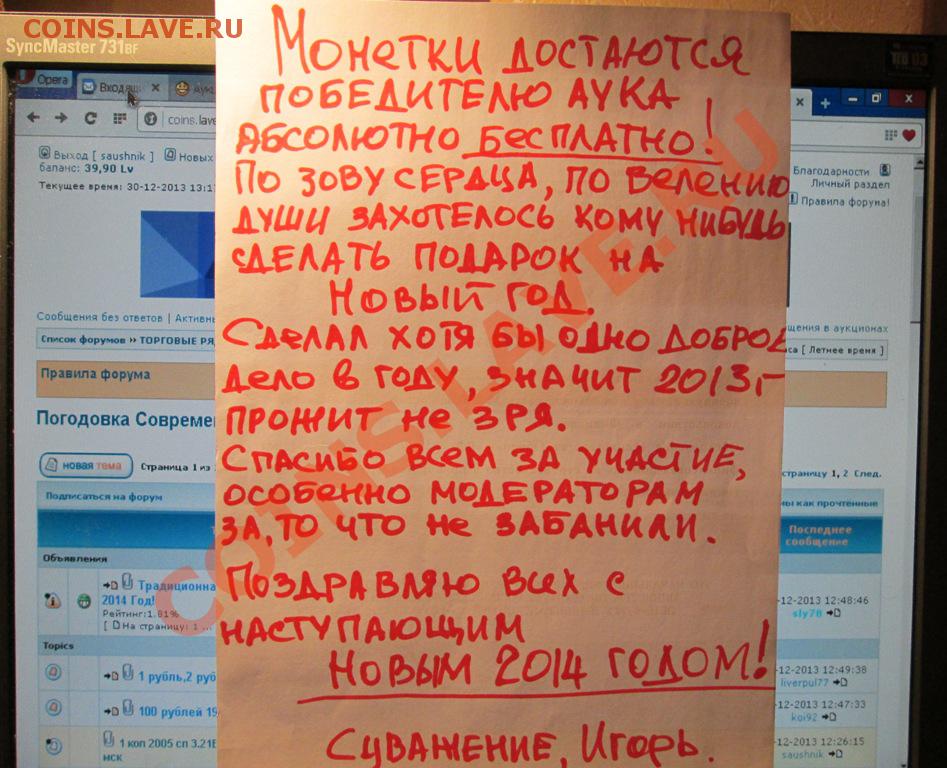 COINS.LAVE.RU
SyncMaster 731BF
Opera
Входящ
Аук
coins.lave
Выход [ saushnik ]
Новых
баланс: 39,90 Lv
Текущее время: 30-12-2013 13:1
Благодарности
Личный раздел
Правила форума!
МОНЕТКИ ДОСТАЮТСЯ
ПОБЕДИТЕЛЮ АУКА
АБСОЛЮТНО БЕСПЛАТНО!
ПО ЗОВУ СЕРДЦА, ПО ВЕЛЕНИЮ
ДУШИ ЗАХОТЕЛОСЬ КОМУ НИБУДЬ
СДЕЛАТЬ ПОДАРОК НА
НОВЫЙ ГОД.
СДЕЛАЛ ХОТЯ БЫ ОДНО ДОБРОЕ
ДЕЛО В ГОДУ, ЗНАЧИТ 2013,-
ПРОЖИТ НЕ ЗРЯ.
СПАСИБО ВСЕМ ЗА УЧАСТИЕ,
ОСОБЕННО МОДЕРАТОРАМ
ЗА, ТО ЧТО НЕ ЗАБАНИЛИ.
ПОЗДРАВЛЯЮ ВСЕХ С
НАСТУПАЮЩИМ
НОВЫМ 2014 ГОДОМ!
СУВАЖЕНИЕ, ИГОРЬ.
COINS.LAVE.RU
Сообщения без ответов | Активн
щения в аукционах
Список форумов » ТОРГОВЫЕ РЯ
са [ Летнее время ]
Правила форума
Погодовка Совреме
новая тема
Страница 1 из
страницу 1, 2 След.
Подписаться на форум
ны как прочтённые
Последнее
сообщение
Объявления
Традиционна
2014 Год!
Рейтинг:1.81%
[ На страницу: 1 ...
-12-2013 12:48:46
sly78
Topics
1 рубль,2 руб
-12-2013 12:49:38
liverpul77
100 рублей 19
-12-2013 12:47:33
koi92
1 коп 2005 сп 3.21Б
мск
-12-2013 12:26:15
saushnik